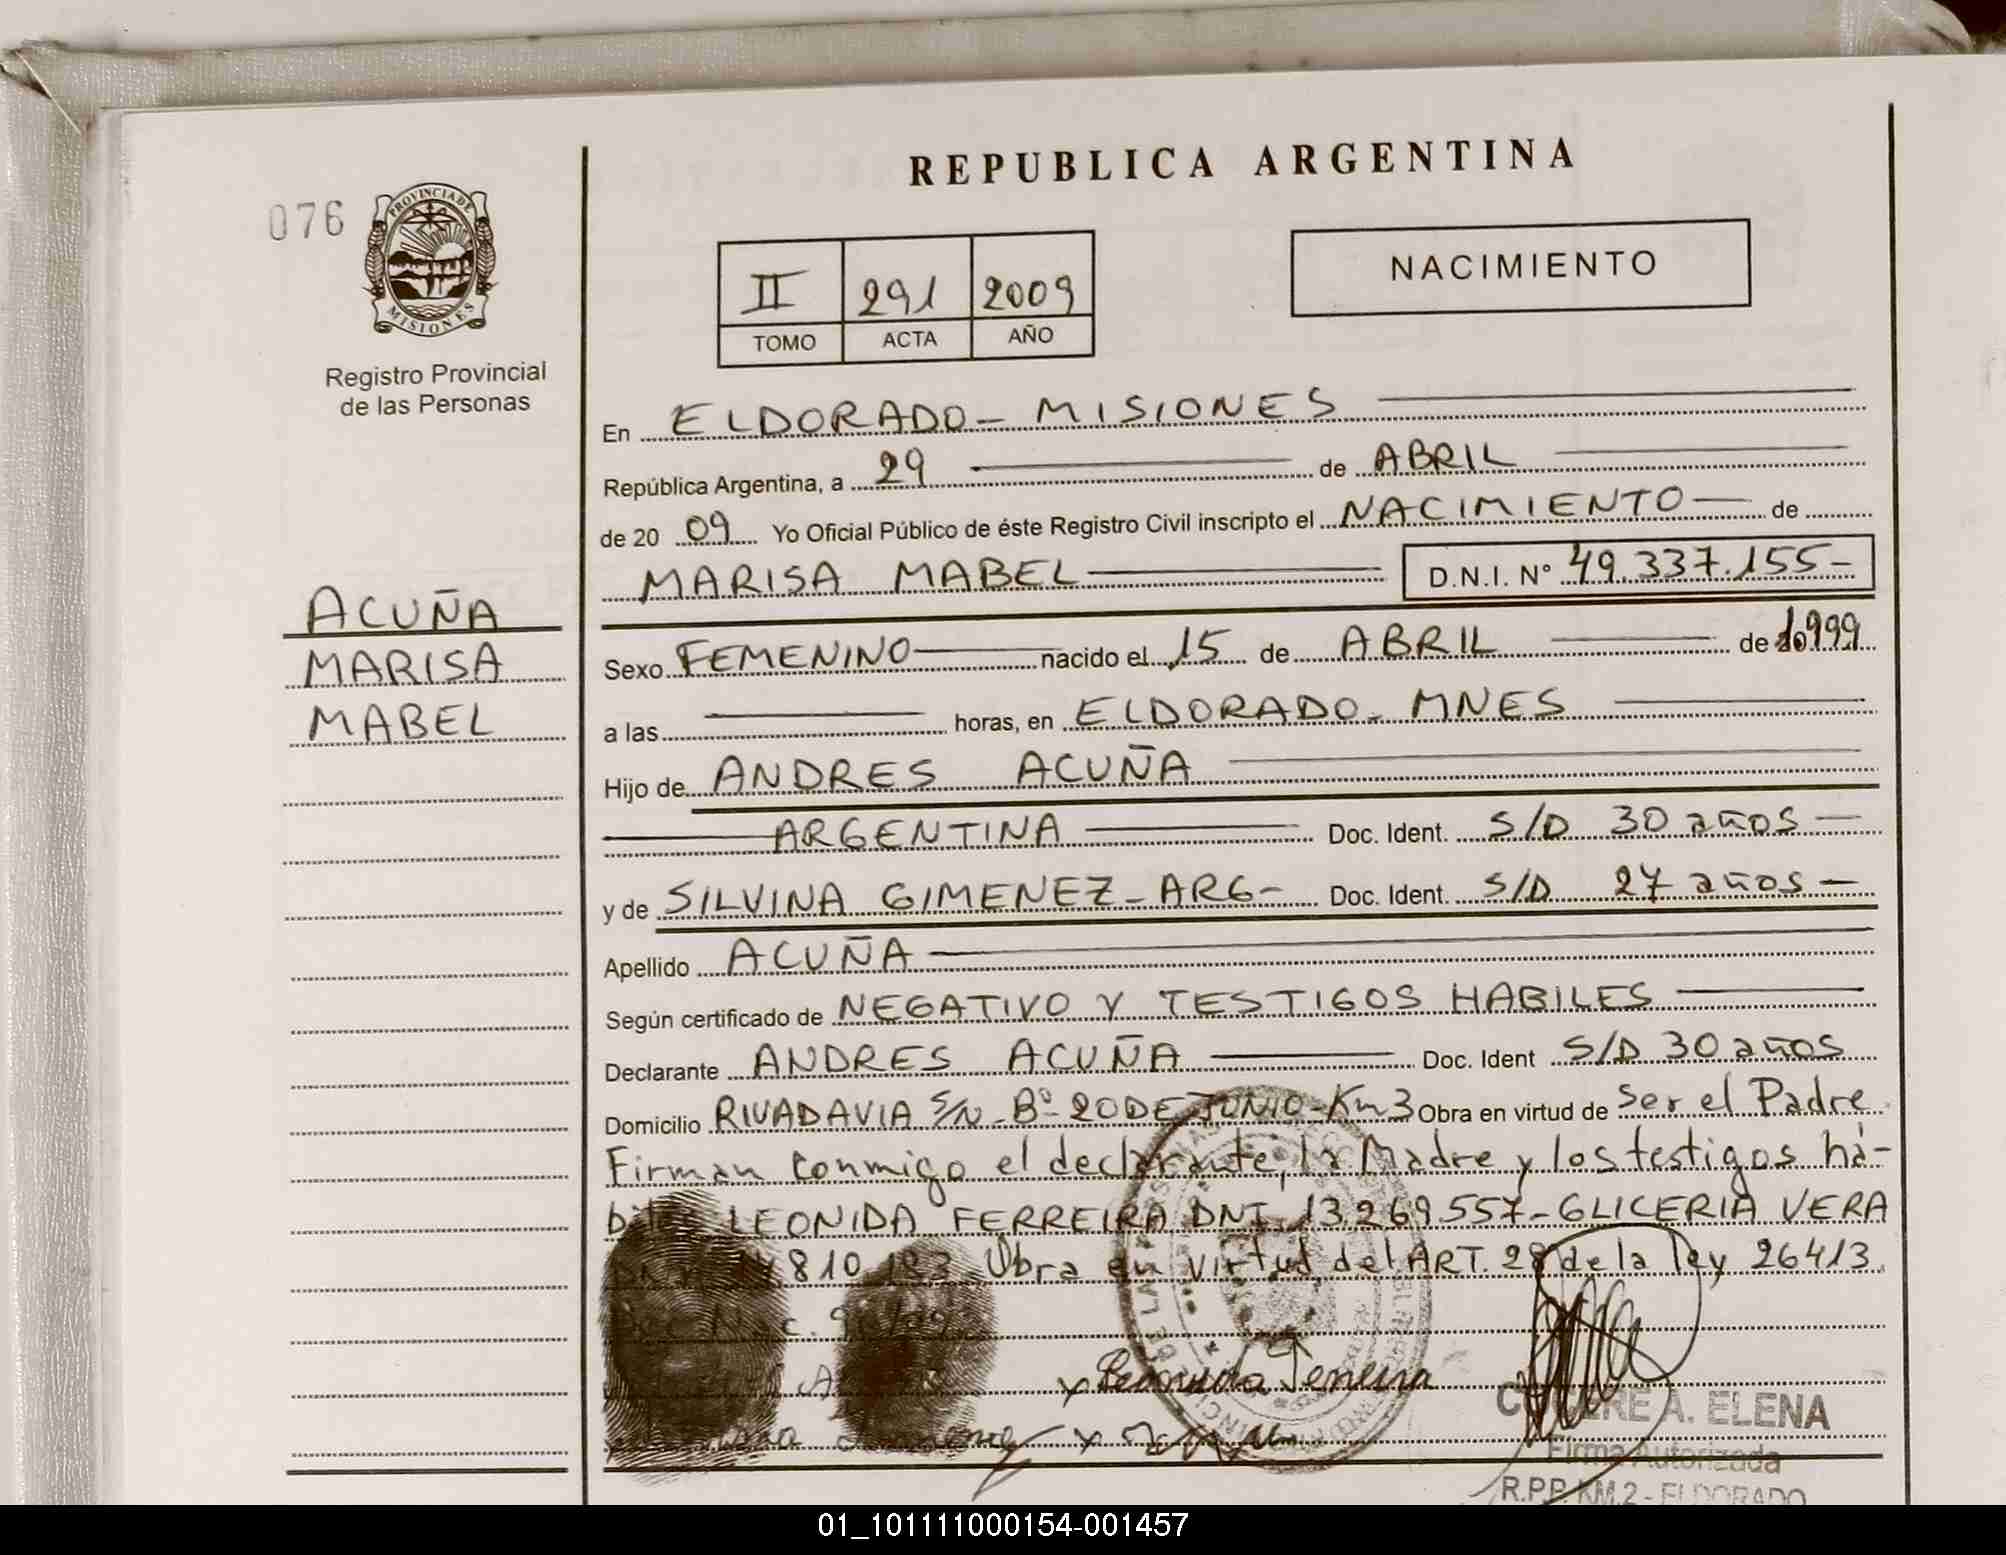 REPUBLICA ARGENTINA
076
PROVINCIA DE
MISIONES
Registro Provincial
de las Personas
II 291 2009
TOMO ACTA AÑO
NACIMIENTO
En ELDORADO - MISIONES
República Argentina, a 29 de ABRIL
de 20 09 Yo Oficial Público de éste Registro Civil inscripto el NACIMIENTO de
MARISA MABEL D.N.I. Nº 49.337.155-
ACUÑA
MARISA
MABEL
Sexo FEMENINO nacido el 15 de ABRIL de 1999
a las horas, en ELDORADO - MNES
Hijo de ANDRES ACUÑA
ARGENTINA Doc. Ident. S/D 30 años
y de SILVINA GIMENEZ - ARG- Doc. Ident. S/D 27 años
Apellido ACUÑA
Según certificado de NEGATIVO Y TESTIGOS HABILES
Declarante ANDRES ACUÑA Doc. Ident S/D 30 años
Domicilio RIVADAVIA S/N - Bº 20 DE JUNIO - Km 3 Obra en virtud de Ser el Padre
Firman conmigo el declarante, la Madre y los testigos há-
biles LEONIDA FERREIRA DNI 13.269.557 - GLICERIA VERA
810 Obra en virtud del ART. 28 de la ley 26413.
x Leonida Ferreira
x
A. ELENA
Firma Autorizada
R.P.P. KM.2 - ELDORADO
01_101111000154-001457